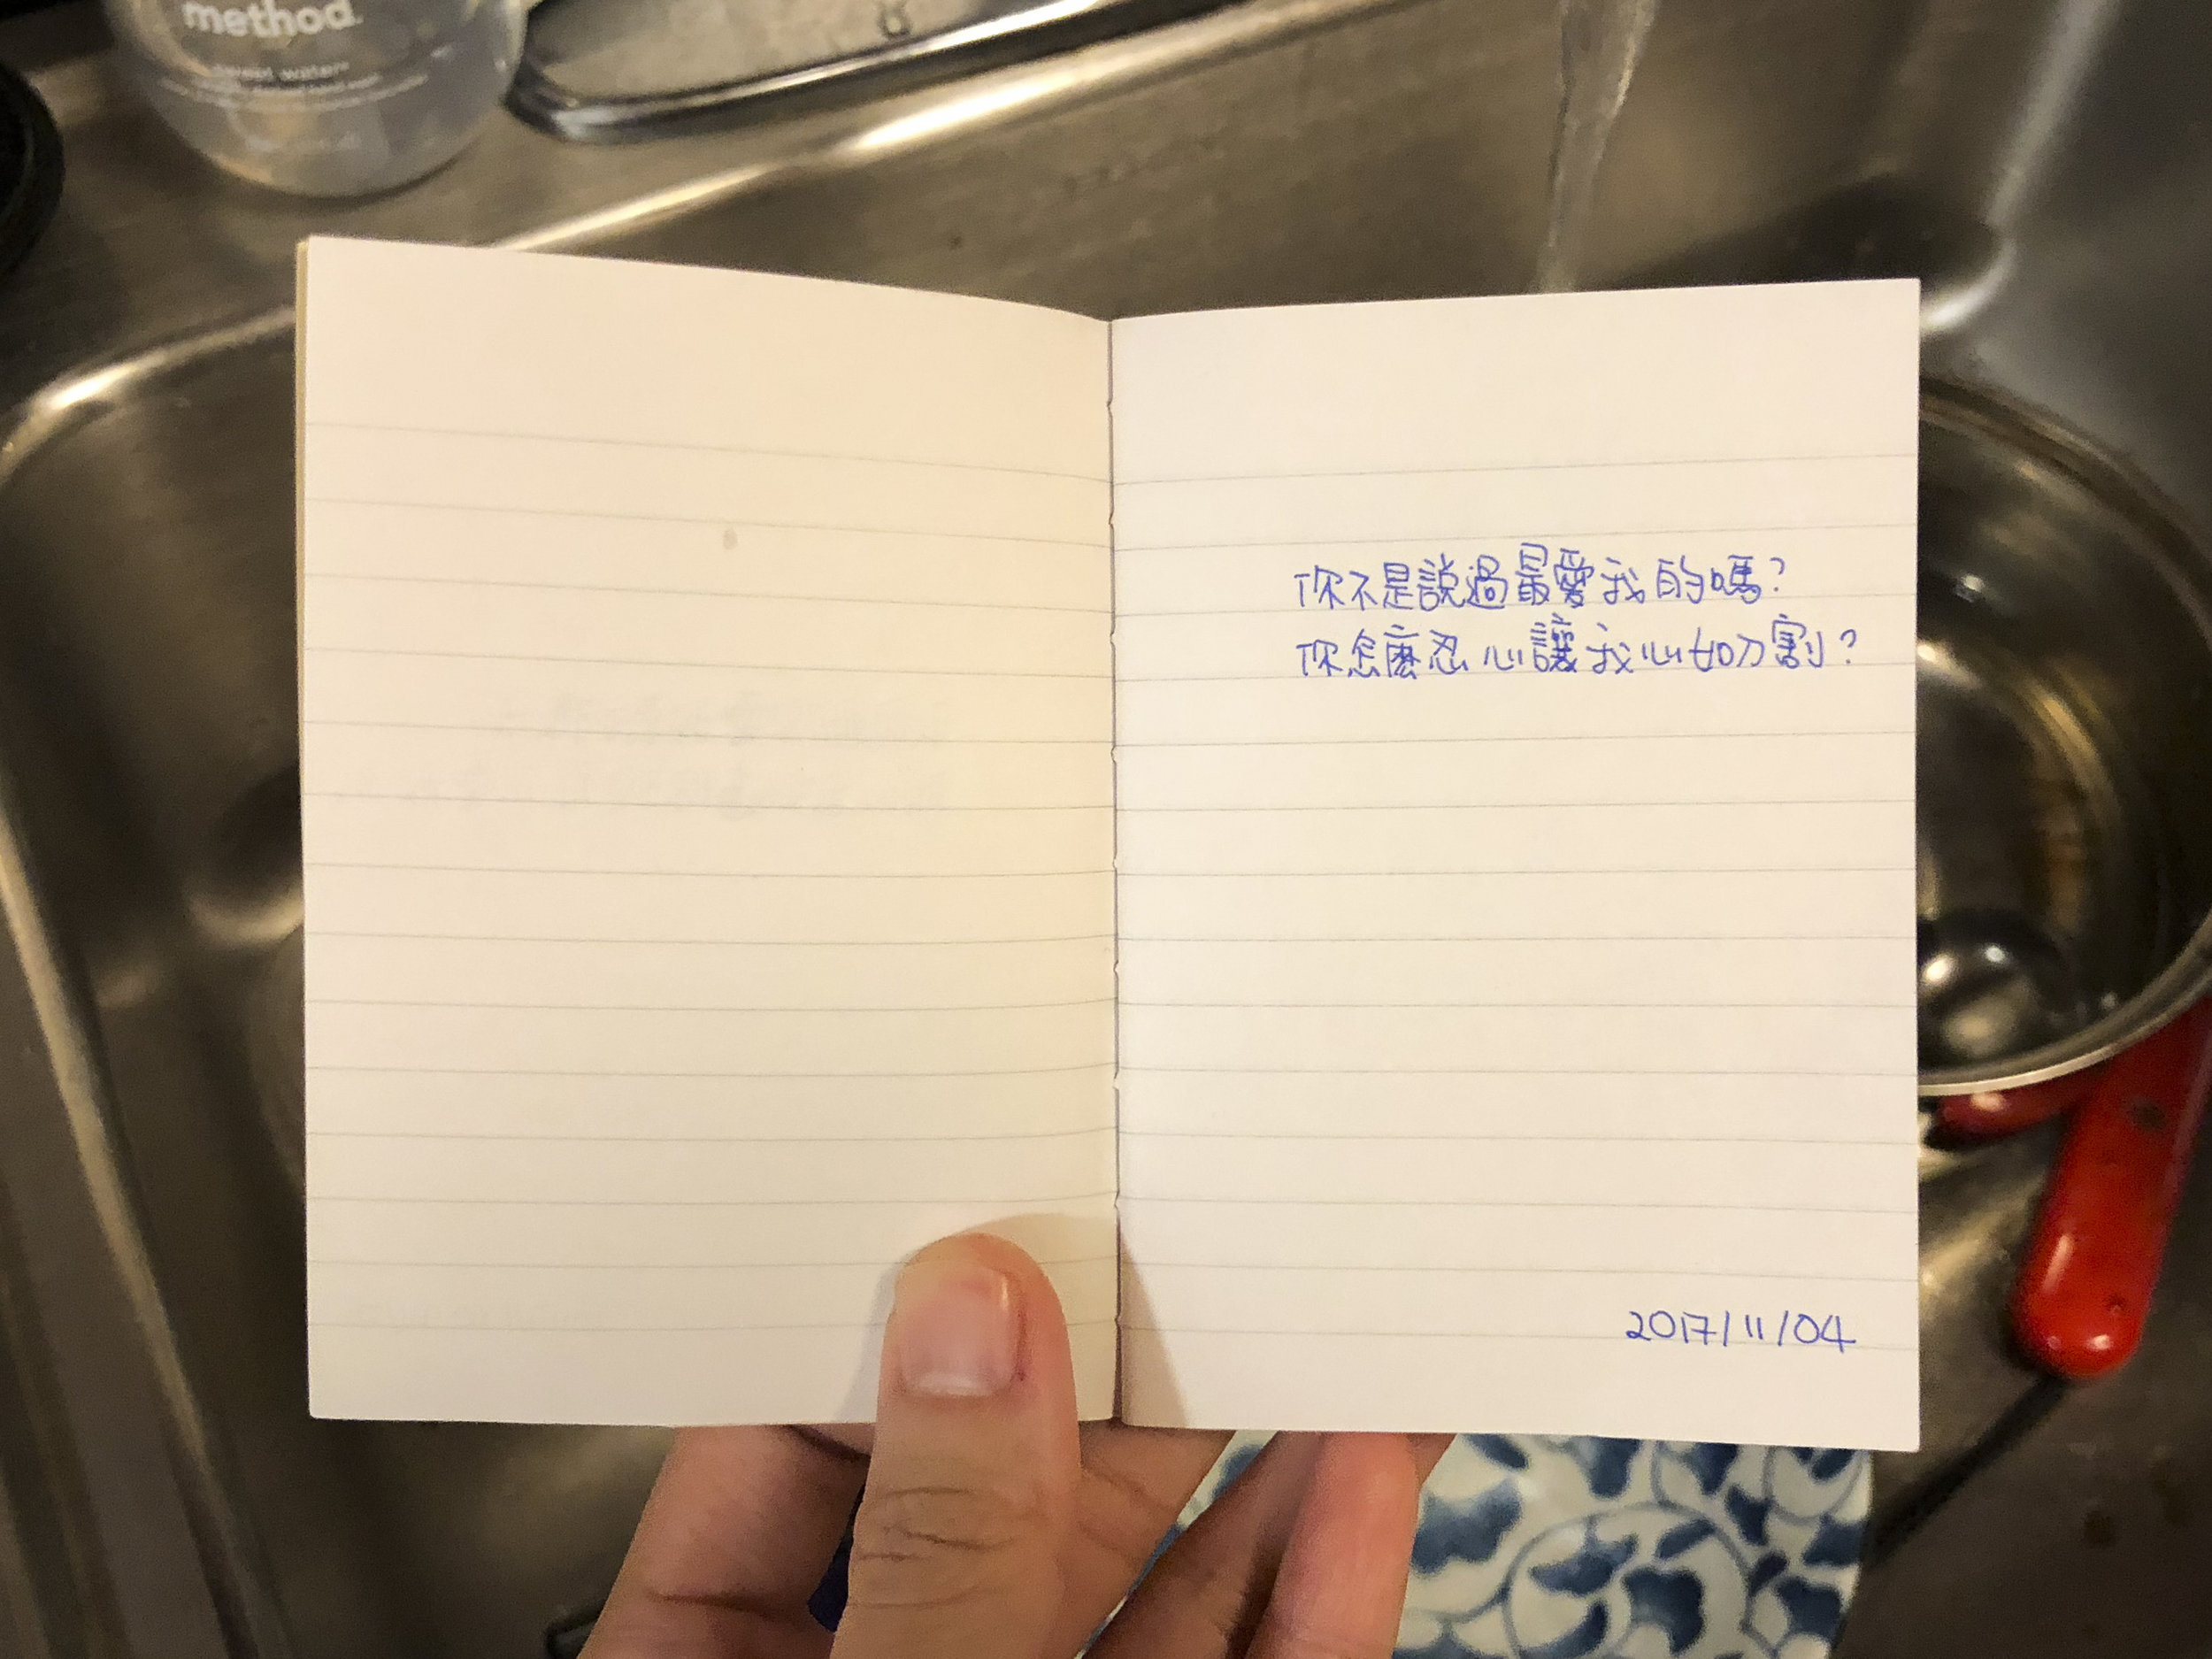 method.
sweet water
你不是說過最愛我的嗎?
你怎麼忍心讓我心如刀割?
2017/11/04